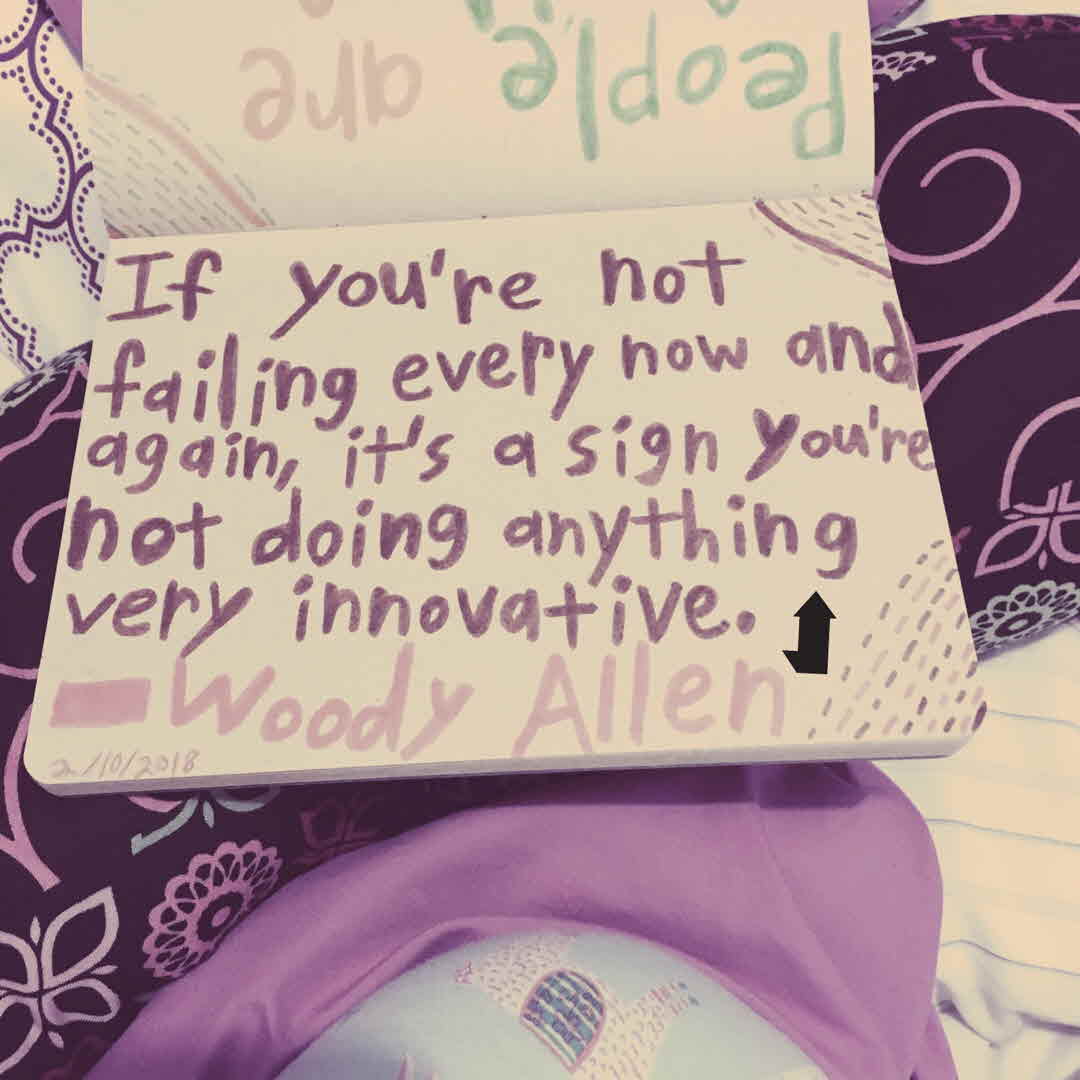 People are
If you're not
failing every now and
again, it's a sign you're
not doing anything
very innovative.
Woody Allen
2/10/2018